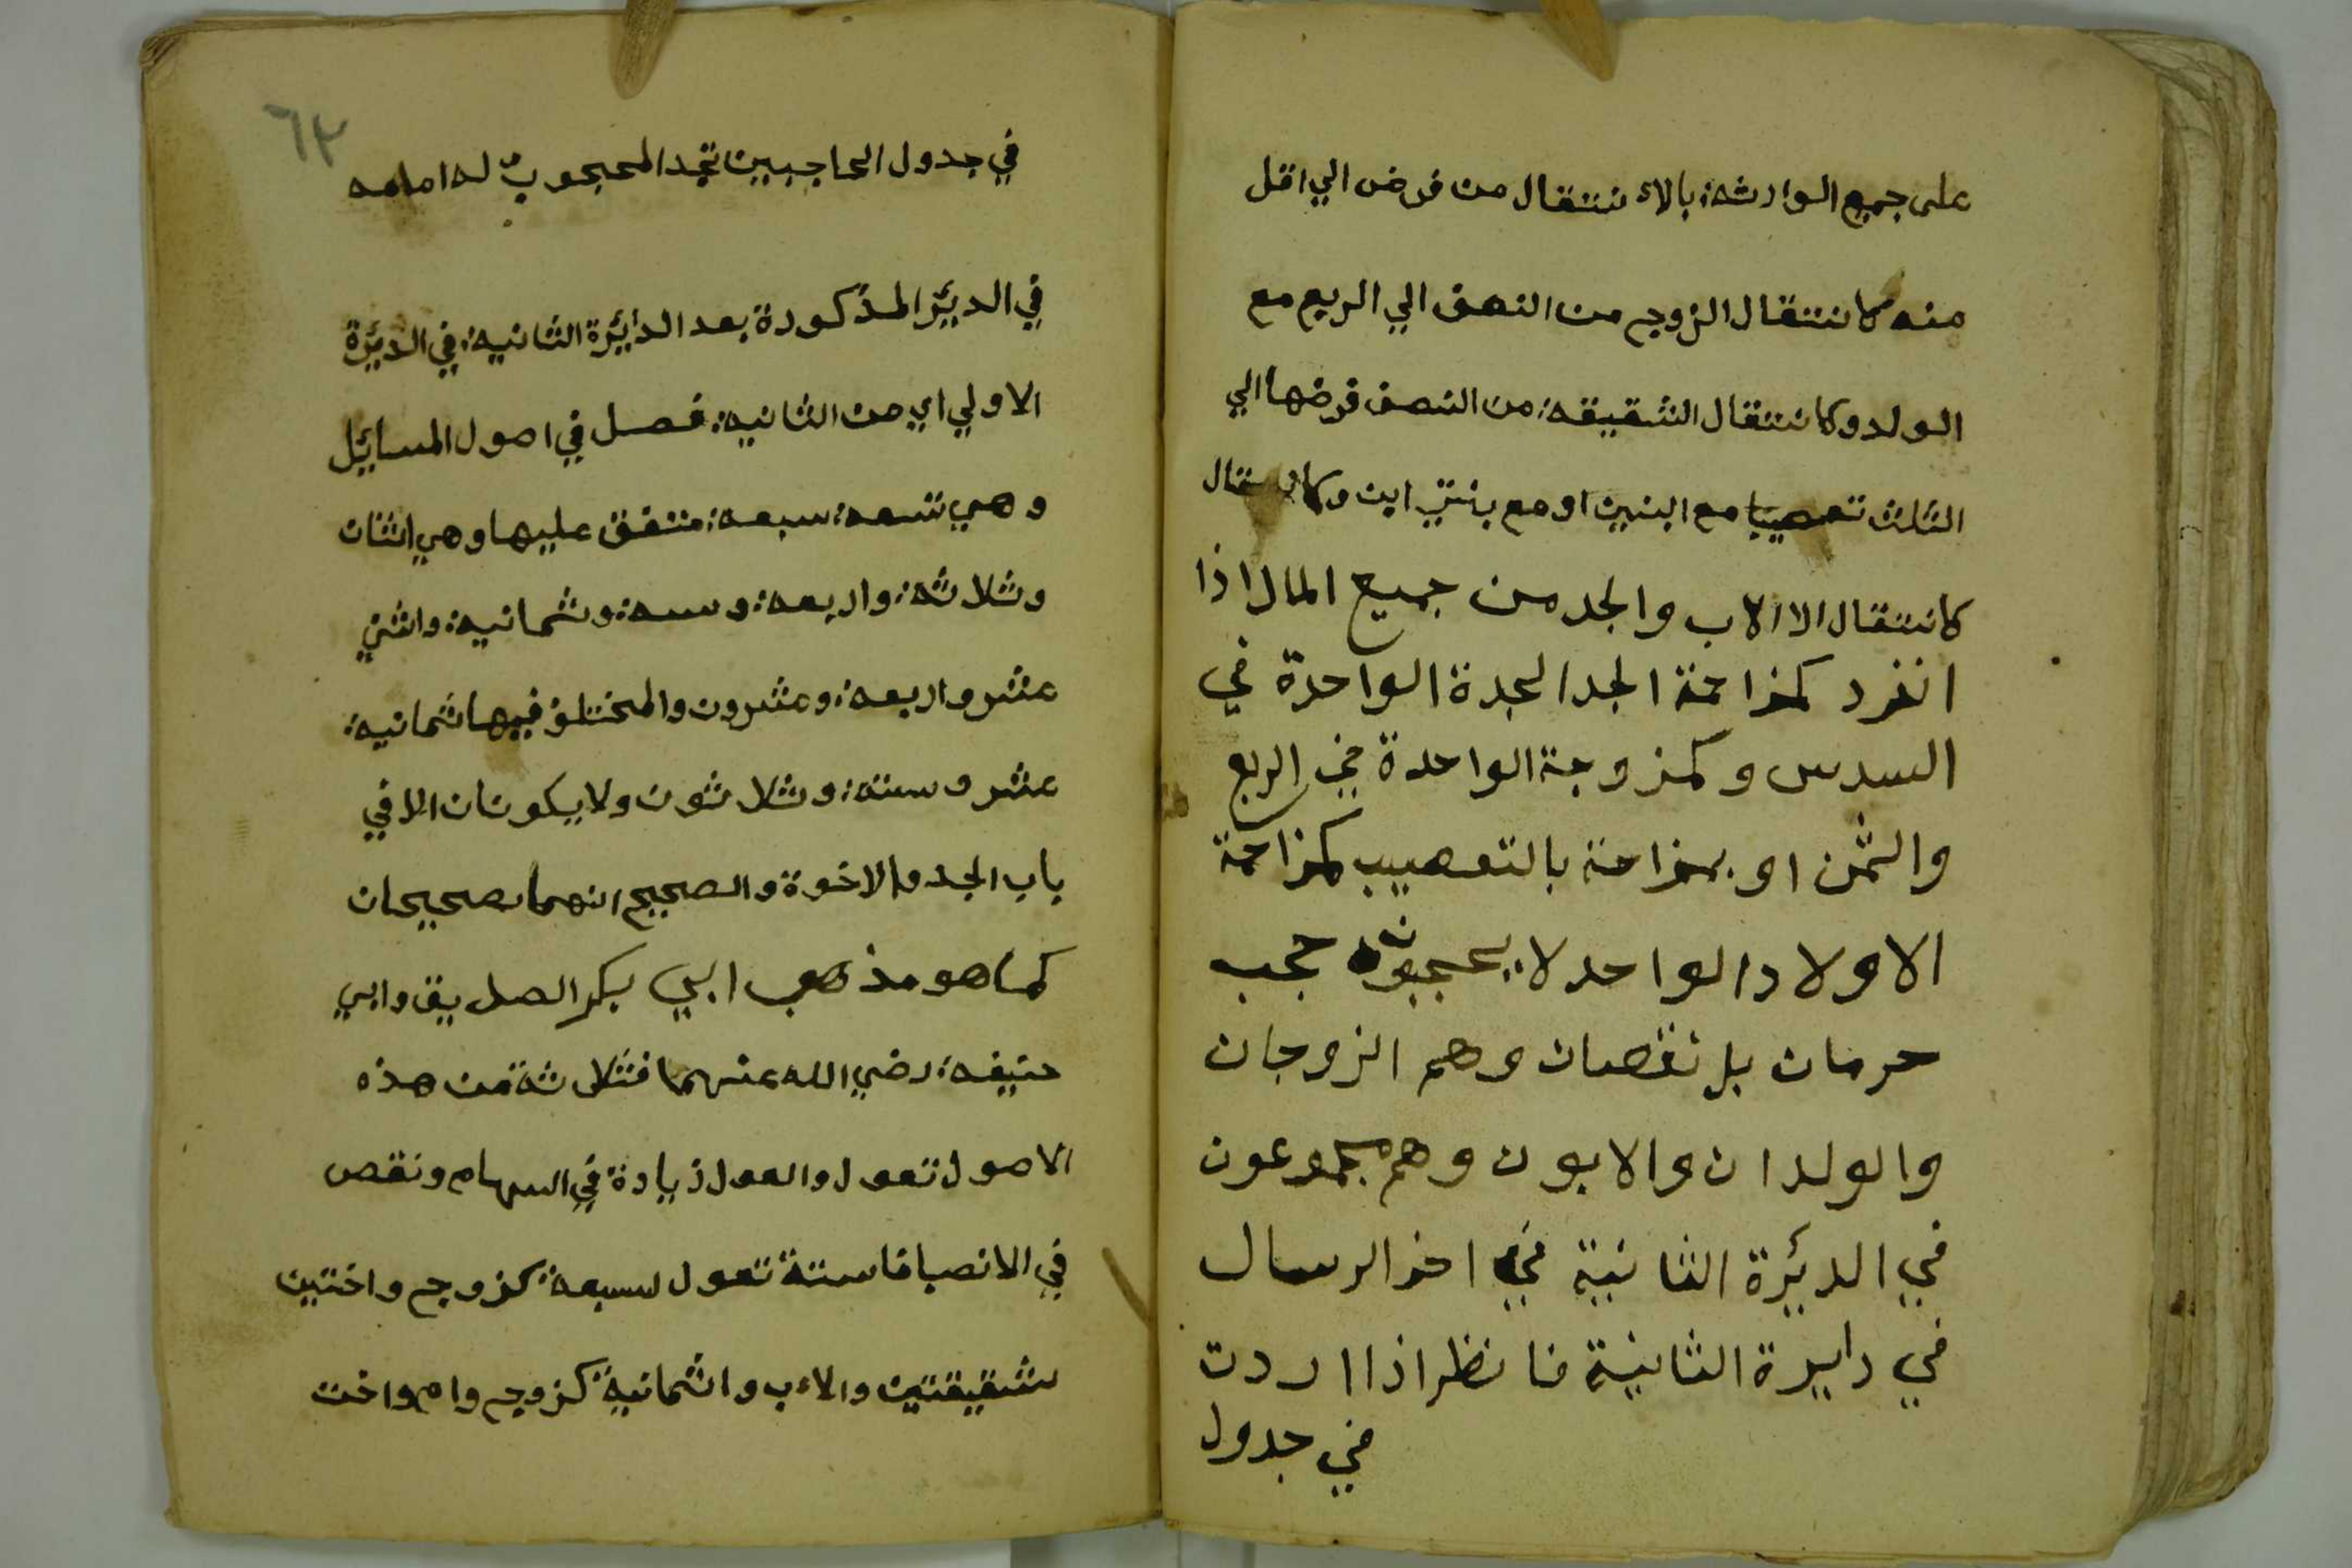 على جميع الوارثة بالاء نتقال من فرض الي اقل
منه كانتقال الزوج من النصف الي الربع مع
الولد وكانتقال الشقيقة من النصف فرضها الي
الثلث تعصيبا مع ابنين او مع بنتي ابن وكا
كانتقال الا الاب والجد من جميع المال اذا
انفرد كمزاحمة الجد الجدة الواحدة في
السدس وكمزوجة الواحدة في الربع
والثمن او بمزاحمة بالتعصيب كمزاحمة
الاولاد الواحد لا يحجبون حجب
حرمان بل نقصان وهم الزوجان
والولدان والابون وهم مجموعون
في الديرة الثانية في اخر الرسال
في دايرة الثانية فانظر اذا اردت
في جدول
٦٣
في جدول الحاجبين تجد المحجوب له امامه
في الديئر المذكورة بعد الدائرة الثانية في الديئرة
الاولي اي من الثانية فصل في اصول المسايئل
وهي تسعة سبعة متفق عليها وهي اثنان
وثلاثة واربعة وستة وثمانية واثني
عشر واربعة وعشرون والمختلف فيها ثمانية
عشر وستة وثلاثون ولا يكونان الا في
باب الجد والاخوة والصحيح انهما صحيحان
كما هو مذهب ابي بكر الصديق وابي
حنيفة رضي الله عنهما فثلاثة من هذه
الاصول تعول والعول زيادة في السهام ونقص
في الانصبا فاستة تعول لسبعة كزوج واختين
شقيقتين والاءب واثمانية كزوج وام واخت